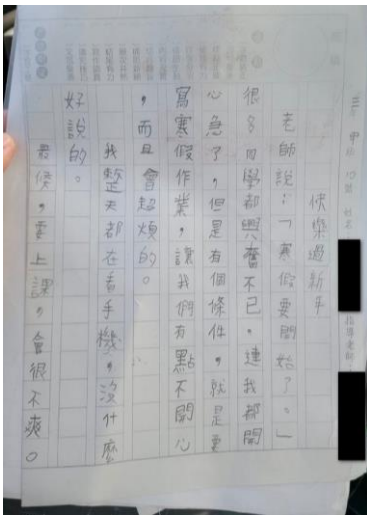 三年甲班10號 姓名 指導老師
快樂過新年
老師說：「寒假要開始了。」
很多同學都興奮不已，連我都開
心急了，但是有個條件，就是要
寫寒假作業，讓我們有點不開心
，而且會超煩的。
我整天都在看手機，沒什麼
好說的。
最後，要上課，會很不爽。